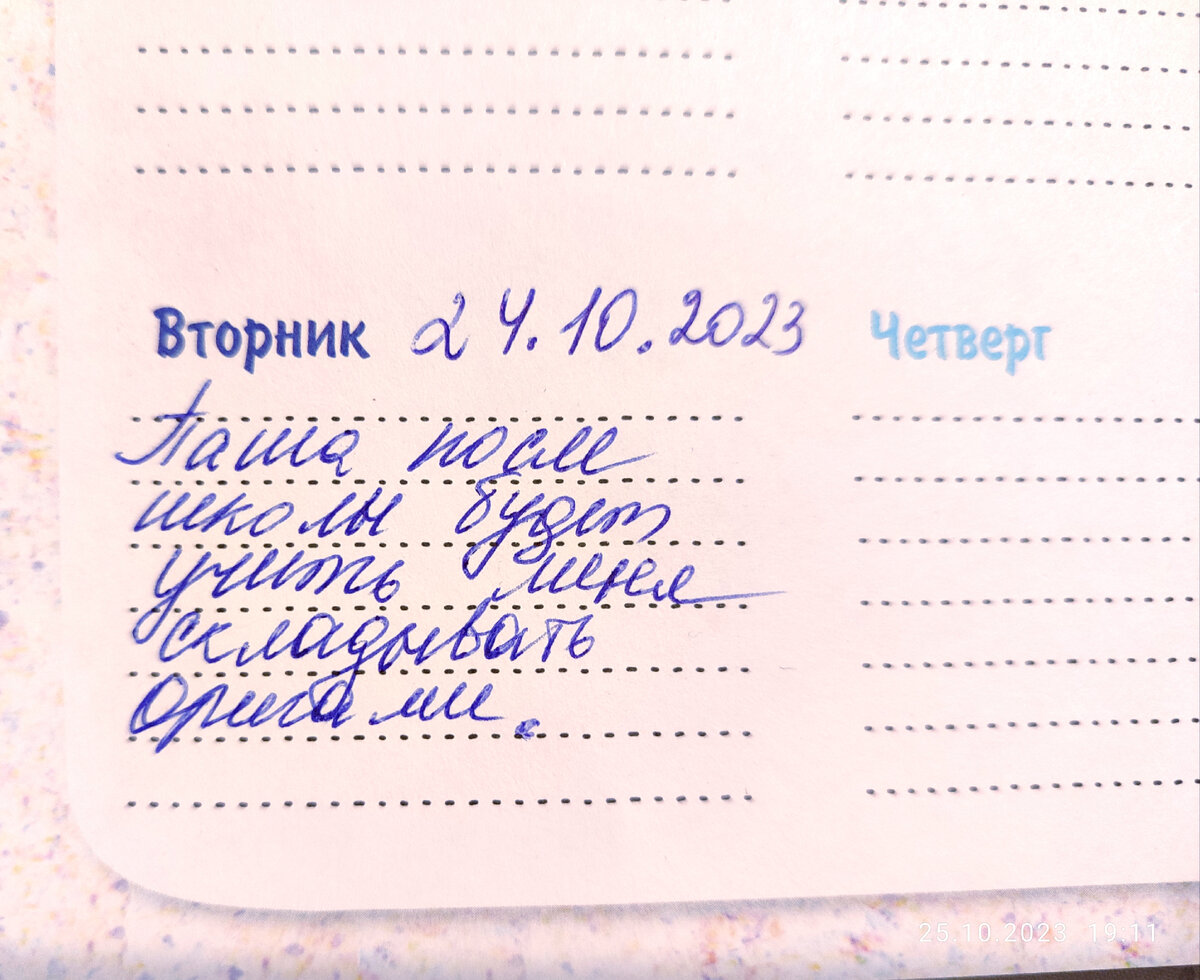 Вторник 24.10.2023
Четверг
Паша после
школы будет
учить меня
складывать
оригами.
25.10.2023 19:11